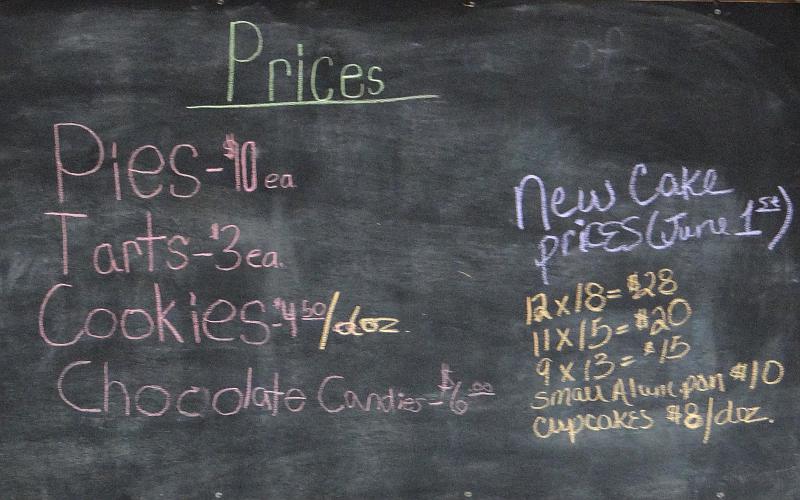 Prices
Pies-$10 ea
Tarts-$3 ea.
Cookies-$4.50/doz.
Chocolate Candies-$6.00
New Cake
prices (June 1st)
12 x 18= $28
11 x 15= $20
9 x 13= $15
small Alum. pan $10
cupcakes $8/doz.